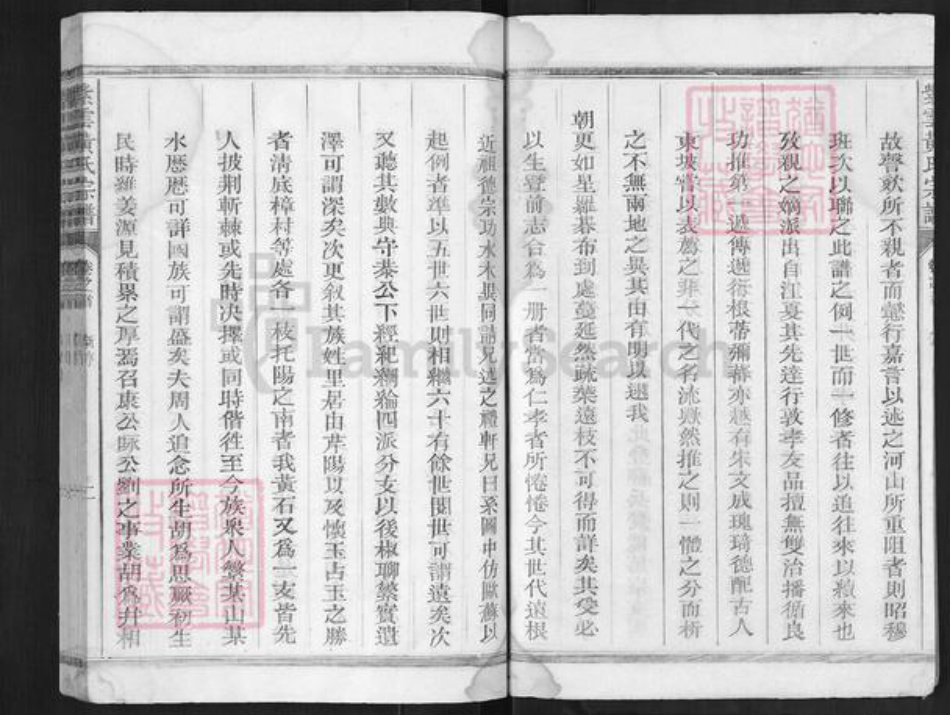 紫雲黃氏宗譜
故聲欬所不親者而懿行嘉言以述之河山所重阻者則昭穆
班次以聯之此譜之例一世而一修者往以追往來以續來也
攷親之嫡派出自江夏其先達行敦孝友品擅無雙治播循良
功推第一遞傳遞衍根蒂彌蕃亦越有宋文成瑰琦德配古人
東坡嘗以表薦之非一代之名流歟然推之則一體之分而析
之不無兩地之異其由有明以還我
朝更如星羅碁布到處蔓延然疏葉遠枝不可得而詳矣其受必
以生登前志合為一册者當為仁孝者所惓惓今其世代遠根
近祖德宗功水木異同請兄述之禮軒兄曰系圖中仿歐蘇以
起例者準以五世六世則相繼六十有餘世閱世可謂遠矣次
又聽其數典守恭公下經紀綱綸四派分支以後椒聊繁實遺
澤可謂深矣次更叙其族姓里居由芹陽以及懷玉占玉之勝
者清底樟村等處各一枝托陽之南者我黃石又為一支皆先
人披荆斬棘或先時决擇或同時偕徃至今族衆人繁某山某
水歷歷可詳國族可謂盛矣夫周人追念所生胡為思厥初生
民時維姜源見積累之厚焉召康公咏公劉之事業胡為并相
紫雲黃氏宗譜